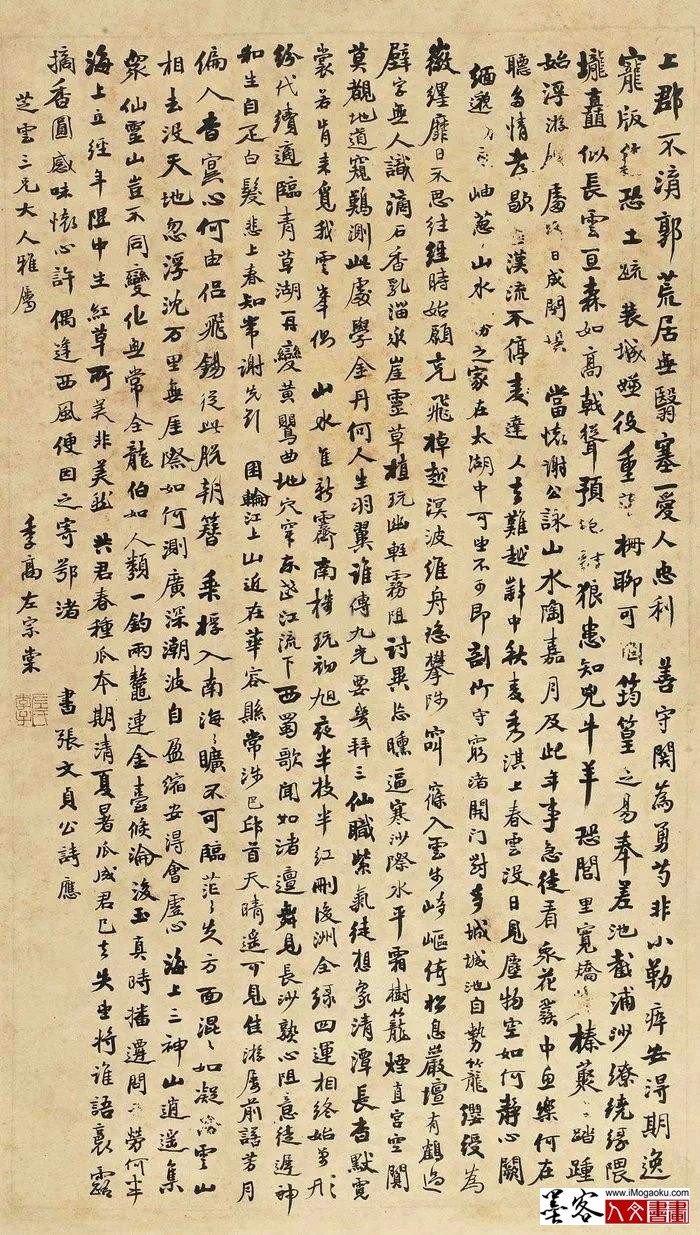 上郡不淯郭荒居無翳塞一愛人忠利 善守関為勇芍非小勒瘁安得期逸
寵版 恐土疏裴城嬗役重 柵聊可固筠篁之易奉差池截浦沙繚繞緣隈
壠矗似長雲亘森如高戟聳預 狼患知兕牛羊恐閭里寬矯 榛藂 踏踵
始浮游 屬 日成閈 當懷謝公詠山水陶嘉月及此年事急徒看众花發中魚樂何在
聴多情者歇 漢流不停表達人者難越辭中秋麦秀淇上春雲没日見塵物空如何静心闕
緬邈 岫蔥 山水 之家在太湖中可坐不可即剖竹守窮渚開门對多城城池自勢籠纓綬為
徽纆靡日不思往經時始願克飛棹越溟波維舟恣攀陟 窱入雲步崎嶇倚松息巖壇有鶴過
壁字無人識滴石香乳溜氶崖靈草植玩幽輕霧阻討異忘曛逼寒沙際水平霜樹籠煙直宮空闃
莫觀地道窺難測此處學金丹何人生羽翼誰傳九光要幾拜三仙職紫氣徒想象清潭長杳默霓
裳若肯来覓我雲峯側 山水佳新霽南樓玩初旭夜半枝半紅刪後洲全緑四運相終始萬形
紛代續適臨青草湖再變黄鸎曲地穴穿东岳江流下西蜀歌聞如渚邅舞見長沙熟心阻意徒遅神
和生自足白髮悲上春知常谢先到 囷輪江上山近在華容縣常涉巴邱首天晴遥可見佳游屬前諾芳月
偏入杳冥心何由侶飛錫從此脱朝簪 乘桴入南海海曠不可臨茫茫失方面混混如凝陰雲山
相去没天地忽浮沈万里無厓際如何測廣深潮波自盈縮安得會虚心 海上三神山逍遥集
衆仙靈山岂不同變化無常全龍伯如人類一釣兩鼇連金臺倏淪没玉真時播遷問 勞何半
海上立經年阻中生紅草所美非美然 共君春種瓜本期清夏暑瓜成君已去失坐将誰語裛露
摘香圓感味懷心許偶逢西風便因之寄鄂渚 書張文貞公詩應
芝雲三兄大人雅屬 季高左宗棠
墨客
人文書畫
www.iMogaoku.com